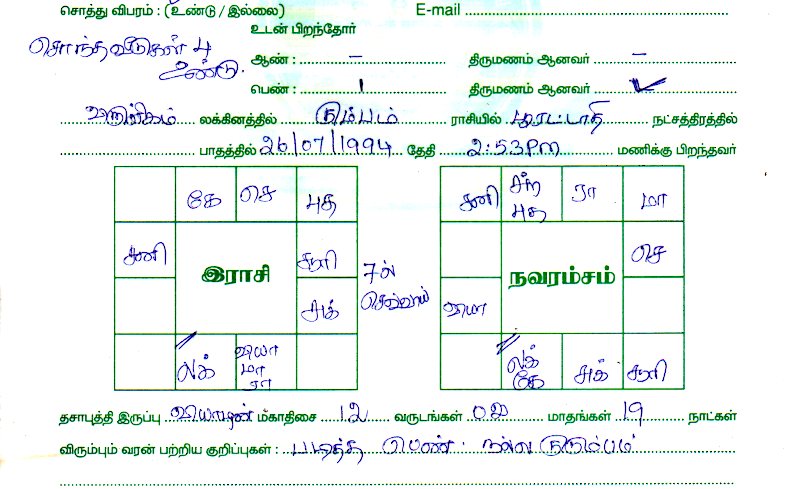 சொத்து விபரம் : (உண்டு / இல்லை) E-mail
உடன் பிறந்தோர்
சொந்தவீடுகள் 4
உண்டு.
ஆண் : – திருமணம் ஆனவர் : –
பெண் : 1 திருமணம் ஆனவர் : ✓
லக்கினத்தில் கும்பம் ராசியில் பூரட்டாதி நட்சத்திரத்தில்
பாதத்தில் 26/07/1994 தேதி 2:53PM மணிக்கு பிறந்தவர்
கே செ புத
சனி சூரி
இராசி
சுக்
லக் வியா மா ரா
7ல் செவ்வாய்
சனி சந் புத ரா மா
செ
நவரம்சம்
வியா
லக் கே சுக் சூரி
தசாபுத்தி இருப்பு வியாழன் மகாதிசை 12 வருடங்கள் 02 மாதங்கள் 19 நாட்கள்
விரும்பும் வரன் பற்றிய குறிப்புகள் : படித்த பெண். நல்ல குடும்பம்